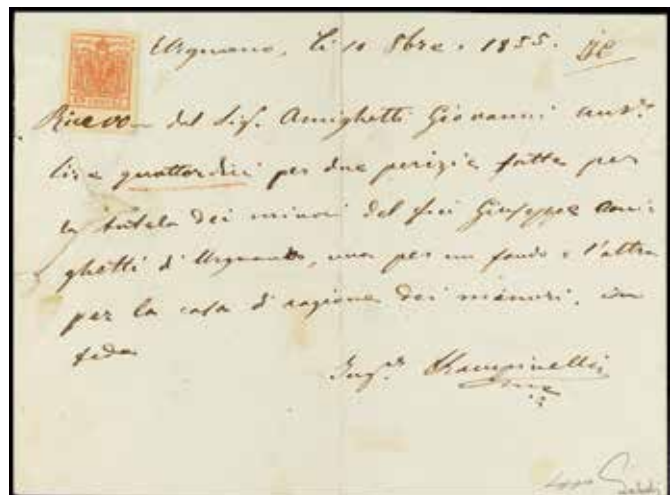 Urgnano, li 10 8bre. 1855.
Ricevo dal Sig. Amighetti Giovanni
lire quattordici per due perizie fatte per
la tutela dei minori del fu Giuseppe Ami
ghetti d'Urgnano, una per un fondo e l'altra
per la casa di ragione dei minori, in
fede
Ing.